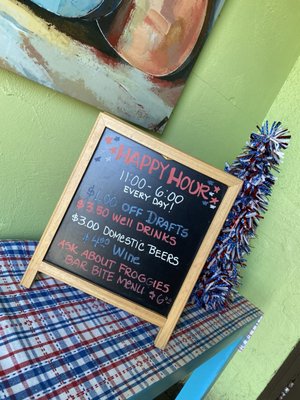 HAPPY HOUR
11:00 - 6:00
EVERY DAY!
$1.00 OFF DRAFTS
$3.50 WELL DRINKS
$3.00 DOMESTIC BEERS
$4.00 WINE
ASK ABOUT FROGGIES
BAR BITE MENU $6.95